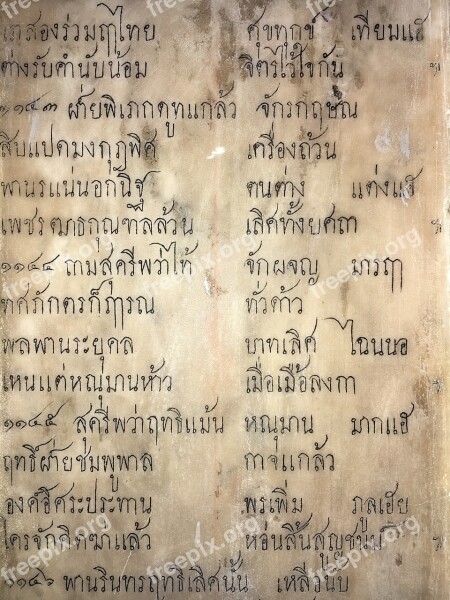 เภสองร่วมฤๅไทย ศุขทุกข์ เทียมแฮ
ต่างรับคำนับน้อม จิตรไว้ใจกัน
๑๑๔๓ ฝ่ายพิเภกดูทูแกล้ว จักรกฤษณ
สิบแปดมงกุฎพิศ เครื่องถ้วน
พานรแน่นอกนิฐ ตนต่าง แต่งแฮ
เพชรฒาธกุณฑัลล้วน เลิศทั้งยศถา
๑๑๔๔ ถามสุครีพว่าไท้ จักผจญ มารฤๅ
ทศภักตรก็ฦๅรณ ทั่วด้าว
พลพานระยุคล บาทเลิศ ไฉนนอ
เหนแต่หณุมานห้าว เมื่อเมือลงกา
๑๑๔๕ สุครีพว่าฤทธิแม้น หณุมาน มากแฮ
ฤทธิ์ฝ่ายชมพูพาล กาจแกล้ว
องค์อิศระประทาน พรเพิ่ม ภูลเฮย
ใครจักคิดฆ่าแล้ว ห่อนสิ้นสูญชนม์
๑๑๔๖ พานรินทรฤทธิเลิศนั้น เหลือนับ